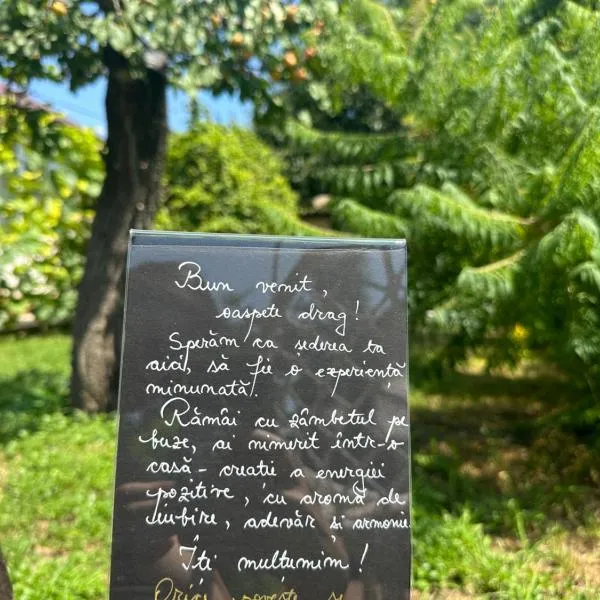 Bun venit,
oaspete drag!
Sperăm ca șederea ta
aici, să fie o experiență
minunată!
Rămâi cu zâmbetul pe
buze, ai nimerit într-o
casă - creație a energiei
pozitive, cu aromă de
iubire, adevăr și armonie.
Îți mulțumim!